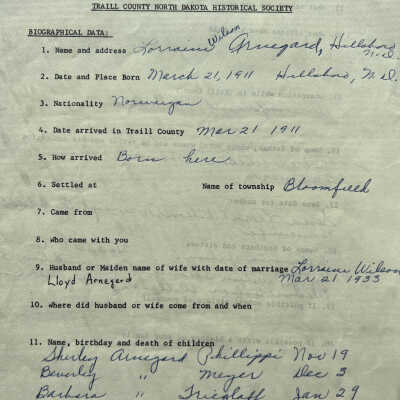 TRAILL COUNTY NORTH DAKOTA HISTORICAL SOCIETY
BIOGRAPHICAL DATA:
1. Name and address Lorraine Wilson Arnegard, Hillsboro N.D.
2. Date and Place Born March 21, 1911 Hillsboro, N.D.
3. Nationality Norwegian
4. Date arrived in Traill County Mar 21 1911
5. How arrived Born here
6. Settled at Name of township Bloomfield
7. Came from
8. Who came with you
9. Husband or Maiden name of wife with date of marriage Lorraine Wilson
Lloyd Arnegard Mar 21 1933
10. Where did husband or wife come from and when
11. Name, birthday and death of children
Shirley Arnegard Phillippi Nov 19
Beverley " Meyer Dec 3
Barbara " Jan 29